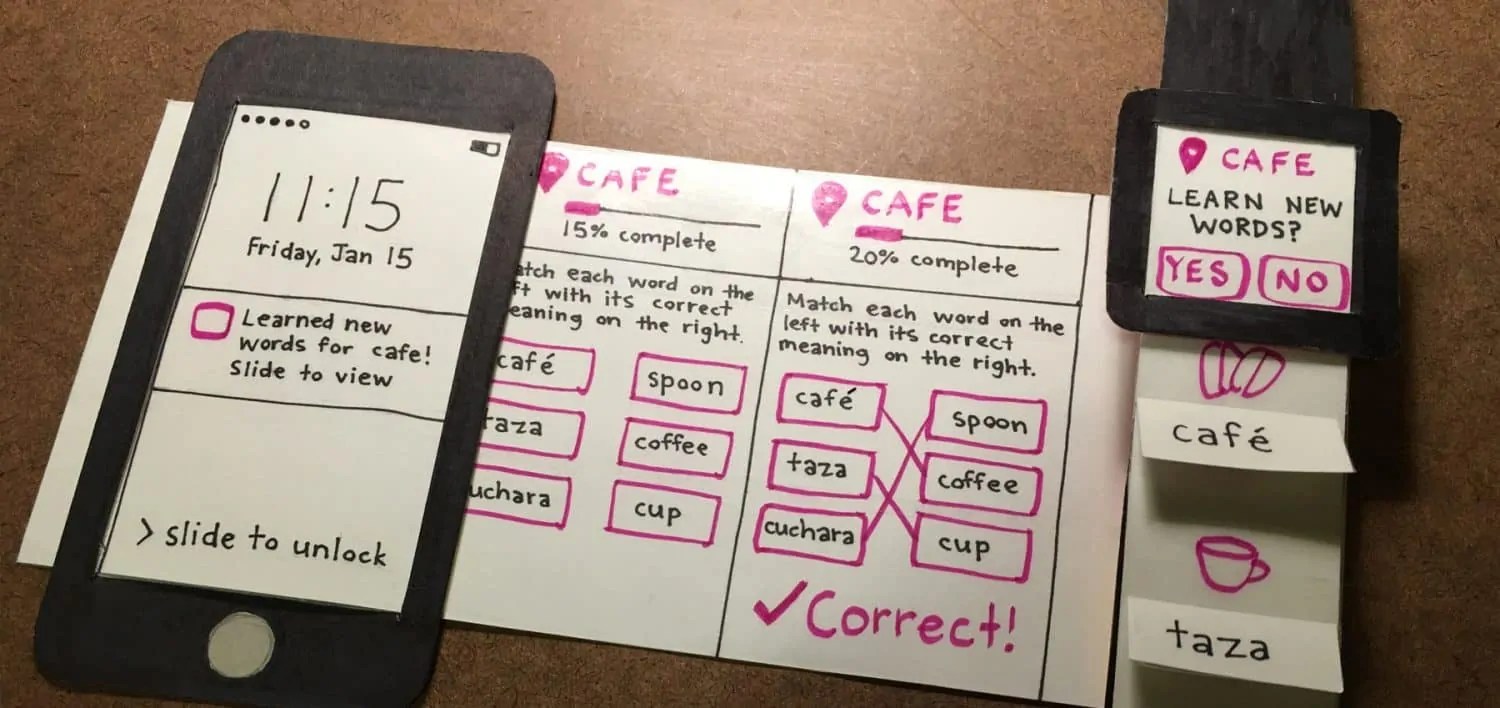 11:15
Friday, Jan 15
Learned new
words for cafe!
Slide to view
> slide to unlock
CAFE
15% complete
each word on the
with its correct
on the right.
café
spoon
coffee
cup
CAFE
20% complete
Match each word on the
left with its correct
meaning on the right.
café
spoon
taza
coffee
cuchara
cup
✓Correct!
CAFE
LEARN NEW
WORDS?
YES
NO
café
taza